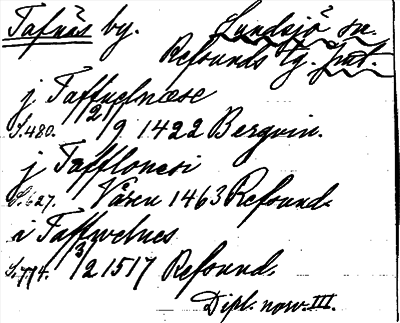 Tafnäs by. Lundsjö sn.
Refsunds tg. Jmt.
j Taffuelnæse
S.480. 21/9 1422 Bergvin.
j Tafflonesi
S.627. Våren 1463 Refsund.
i Taffwelnes
S.774. 3/2 1517 Refsund.
Dipl. norv. III.